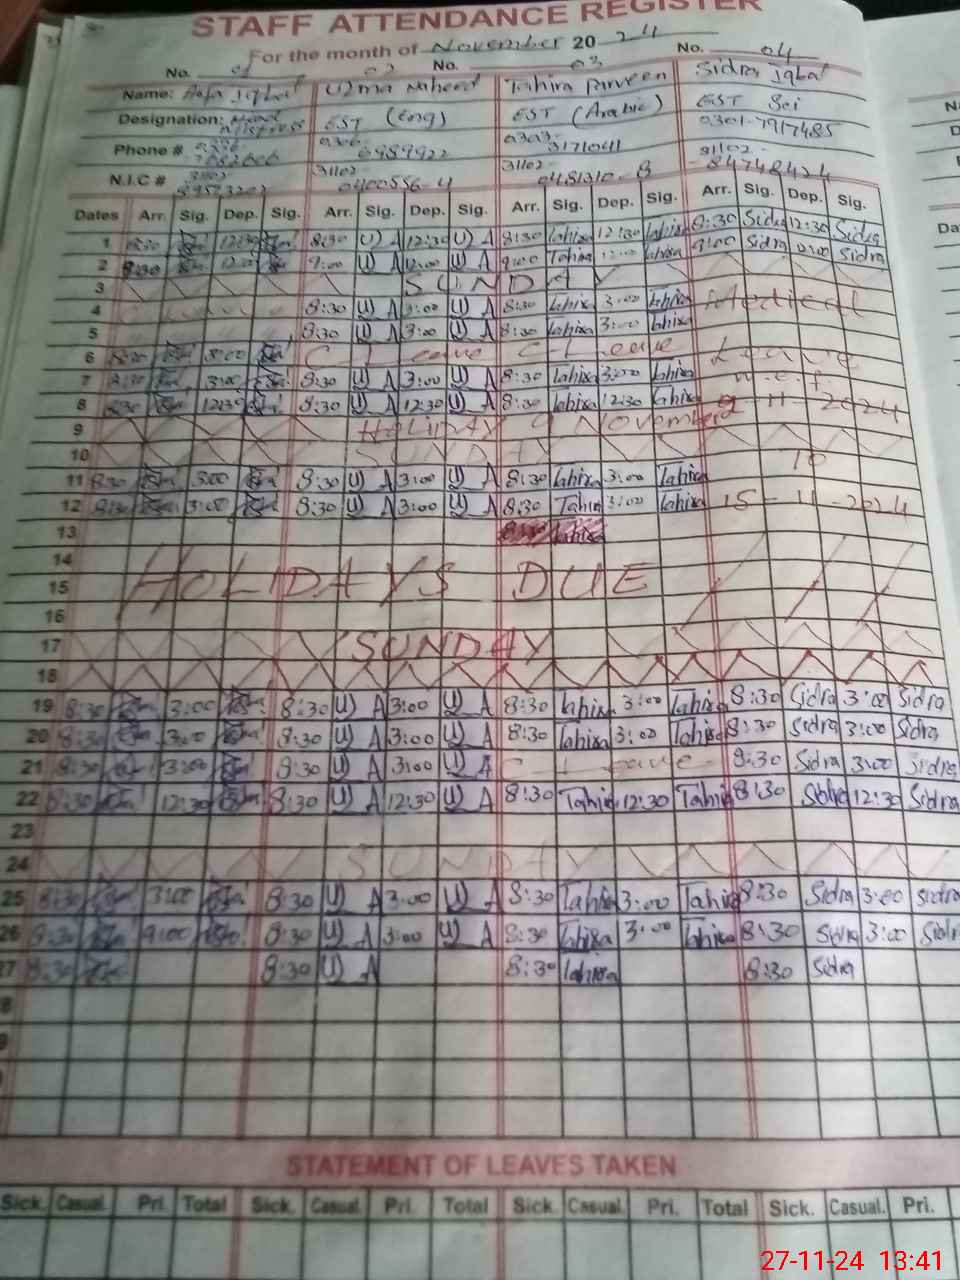 STAFF ATTENDANCE REGISTER
For the month of November 20 24
No. 01 02 No. 03 No. 04
Name: Iqbal Uzma Naheed Tahira Parveen Sidra Iqbal
Designation: EST (Eng) EST (Arabic) EST Sci
Phone # 0306- 6989922 0303- 3171041 0301-7917485
N.I.C # 31102- 31102- 0400556-4 31102- 0481310-8 31102- 84748424
Dates Arr. Sig. Dep. Sig. Arr. Sig. Dep. Sig. Arr. Sig. Dep. Sig. Arr. Sig. Dep. Sig.
1 8:30 12:30 8:30 U A 12:30 U A 8:30 Tahira 12:30 Tahira 8:30 Sidra 12:30 Sidra
2 8:30 12:00 9:00 U A 12:00 U A 9:00 Tahira Tahira 9:00 Sidra 12:00 Sidra
3 SUNDAY
4 8:30 U A 3:00 U A 8:30 Tahira 3:00 Tahira Medical
5 8:30 U A 3:00 U A 8:30 Tahira 3:00 Tahira
6 8:30 3:00 C-Leave C-Leave Leave
7 8:30 3:00 8:30 U A 3:00 U A 8:30 Tahira 3:00 Tahira w.e.f.
8 8:30 12:30 8:30 U A 12:30 U A 8:30 Tahira 12:30 Tahira 11-2024
9 HOLIDAY 9 November
10 SUNDAY To
11 8:30 3:00 8:30 U A 3:00 U A 8:30 Tahira 3:00 Tahira
12 8:30 3:00 8:30 U A 3:00 U A 8:30 Tahira 3:00 Tahira 15-11-2024
13 8:30 Tahira
14
15 HOLIDAYS DUE
16
17 SUNDAY
18
19 8:30 3:00 8:30 U A 3:00 U A 8:30 Tahira 3:00 Tahira 8:30 Sidra 3:00 Sidra
20 8:30 3:00 8:30 U A 3:00 U A 8:30 Tahira 3:00 Tahira 8:30 Sidra 3:00 Sidra
21 8:30 3:00 8:30 U A 3:00 U A C-Leave 8:30 Sidra 3:00 Sidra
22 8:30 12:30 8:30 U A 12:30 U A 8:30 Tahira 12:30 Tahira 8:30 Sidra 12:30 Sidra
23
24 SUNDAY
25 8:30 3:00 8:30 U A 3:00 U A 8:30 Tahira 3:00 Tahira 8:30 Sidra 3:00 Sidra
26 8:30 8:30 U A 3:00 U A 8:30 Tahira 3:00 Tahira 8:30 Sidra 3:00 Sidra
27 8:30 8:30 U A 8:30 Tahira 8:30 Sidra
STATEMENT OF LEAVES TAKEN
Sick. Casual. Pri. Total Sick. Casual. Pri. Total Sick. Casual. Pri. Total Sick. Casual. Pri.
27-11-24 13:41